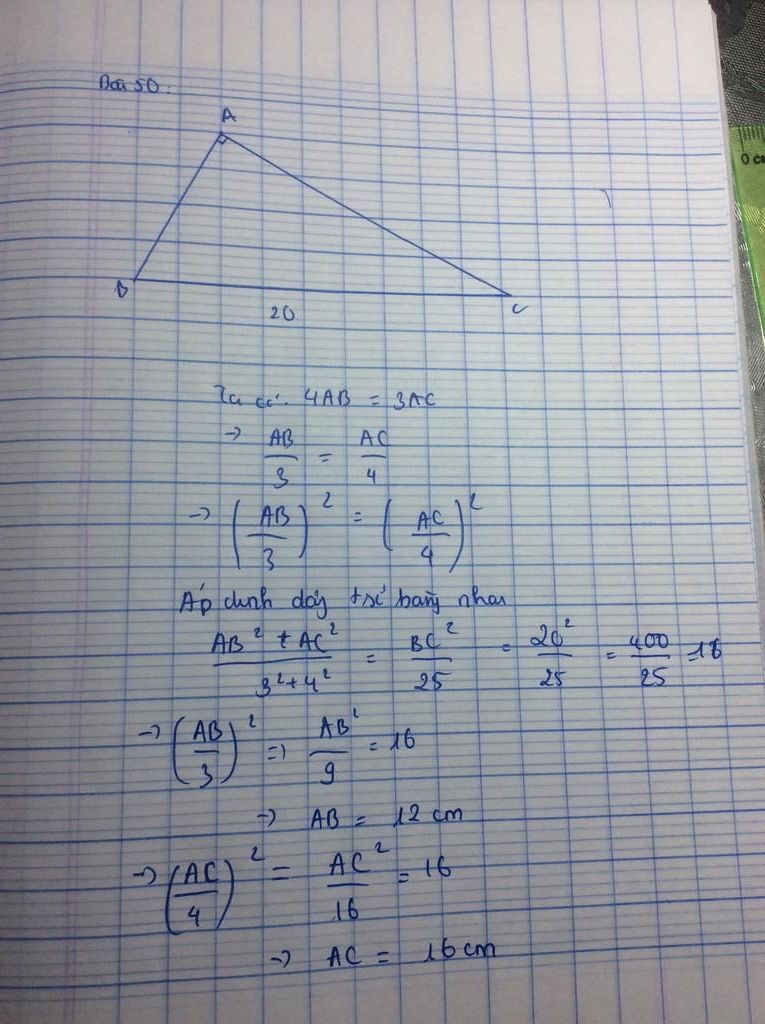 Bài 50:
A
B
20
C
0 cm
Ta có. 4AB = 3AC
→ AB/3 = AC/4
→ (AB/3)² = (AC/4)²
Áp dụnh dãy tsố bằng nhau
AB² + AC² / 3²+4² = BC²/25 = 20²/25 = 400/25 = 16
→ (AB/3)² => AB²/9 = 16
→ AB = 12 cm
→ (AC/4)² = AC²/16 = 16
→ AC = 16 cm